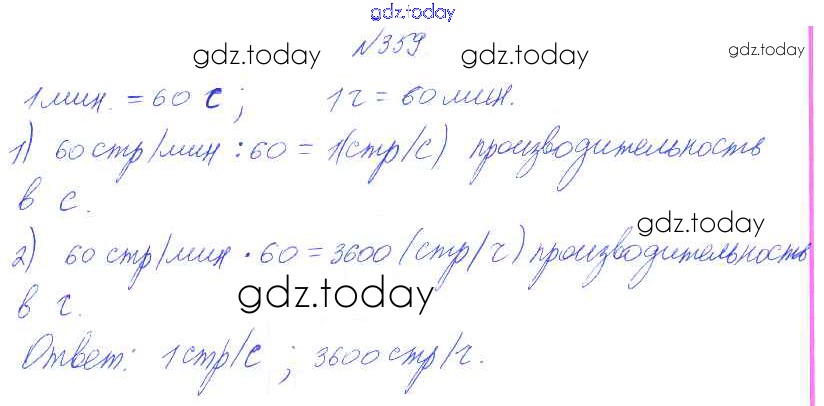 gdz.today
№359
gdz.today gdz.today gdz.today
1 мин. = 60 с; 1 г = 60 мин.
1) 60 стр/мин : 60 = 1(стр/с) производительность
в с.
gdz.today
2) 60 стр/мин · 60 = 3600 (стр/ч) производительность
в ч.
gdz.today
Ответ: 1 стр/с ; 3600 стр/ч.